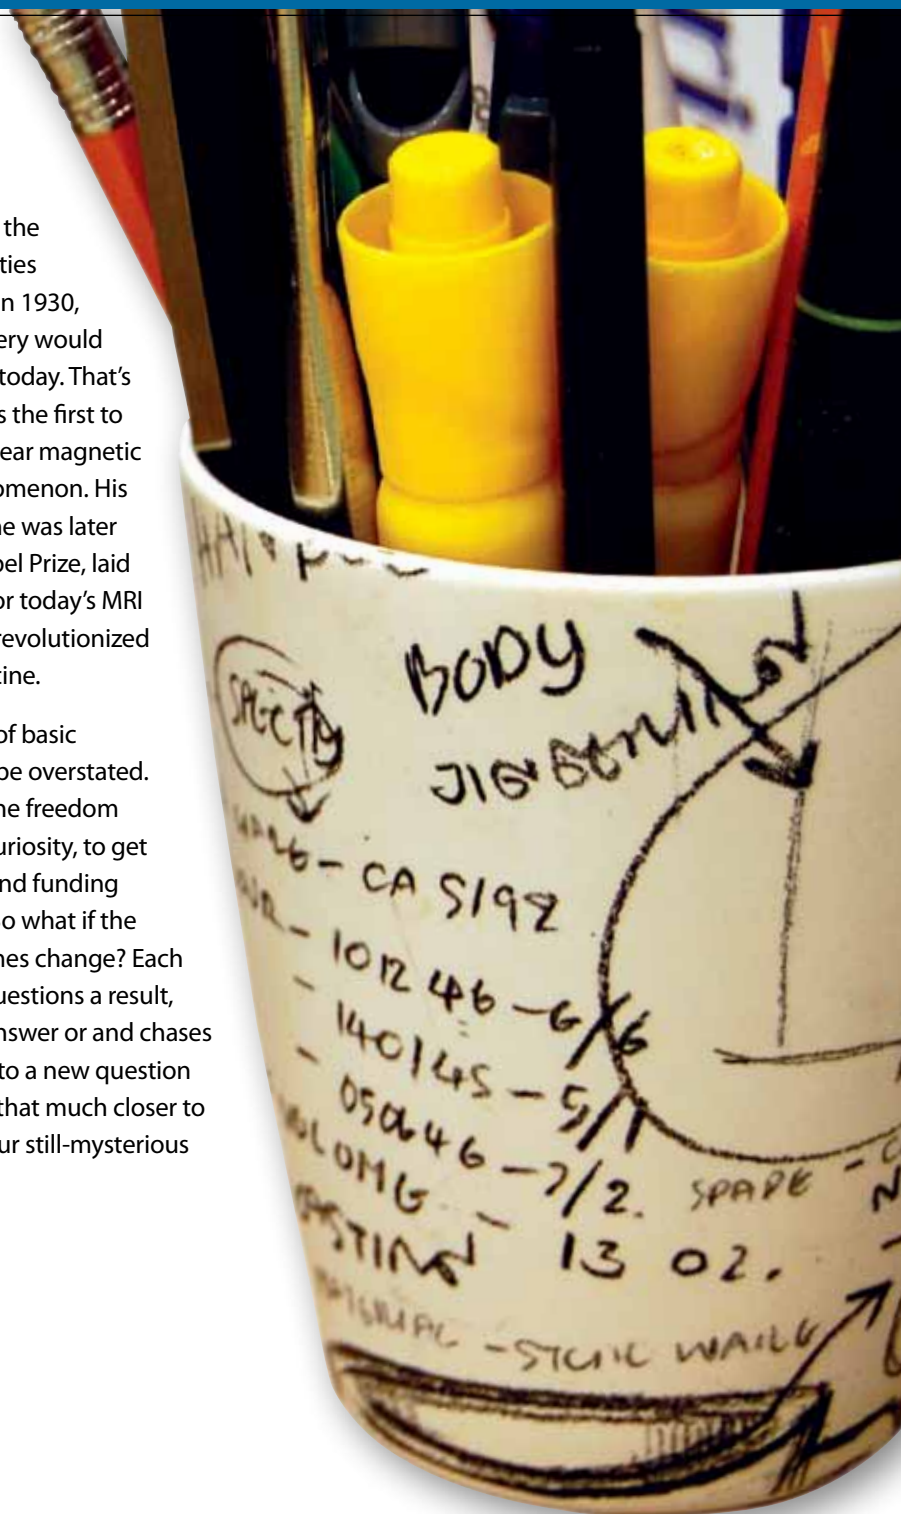 the
ties
n 1930,
ery would
today. That's
s the first to
ear magnetic
omenon. His
ne was later
pel Prize, laid
or today's MRI
revolutionized
cine.
of basic
be overstated.
he freedom
uriosity, to get
nd funding
so what if the
nes change? Each
uestions a result,
nswer or and chases
to a new question
that much closer to
ur still-mysterious
BODY
CA 5192
101246 - 6/6
140145 - 5/1
050646 - 7/2. SPAPE - C
13 02.